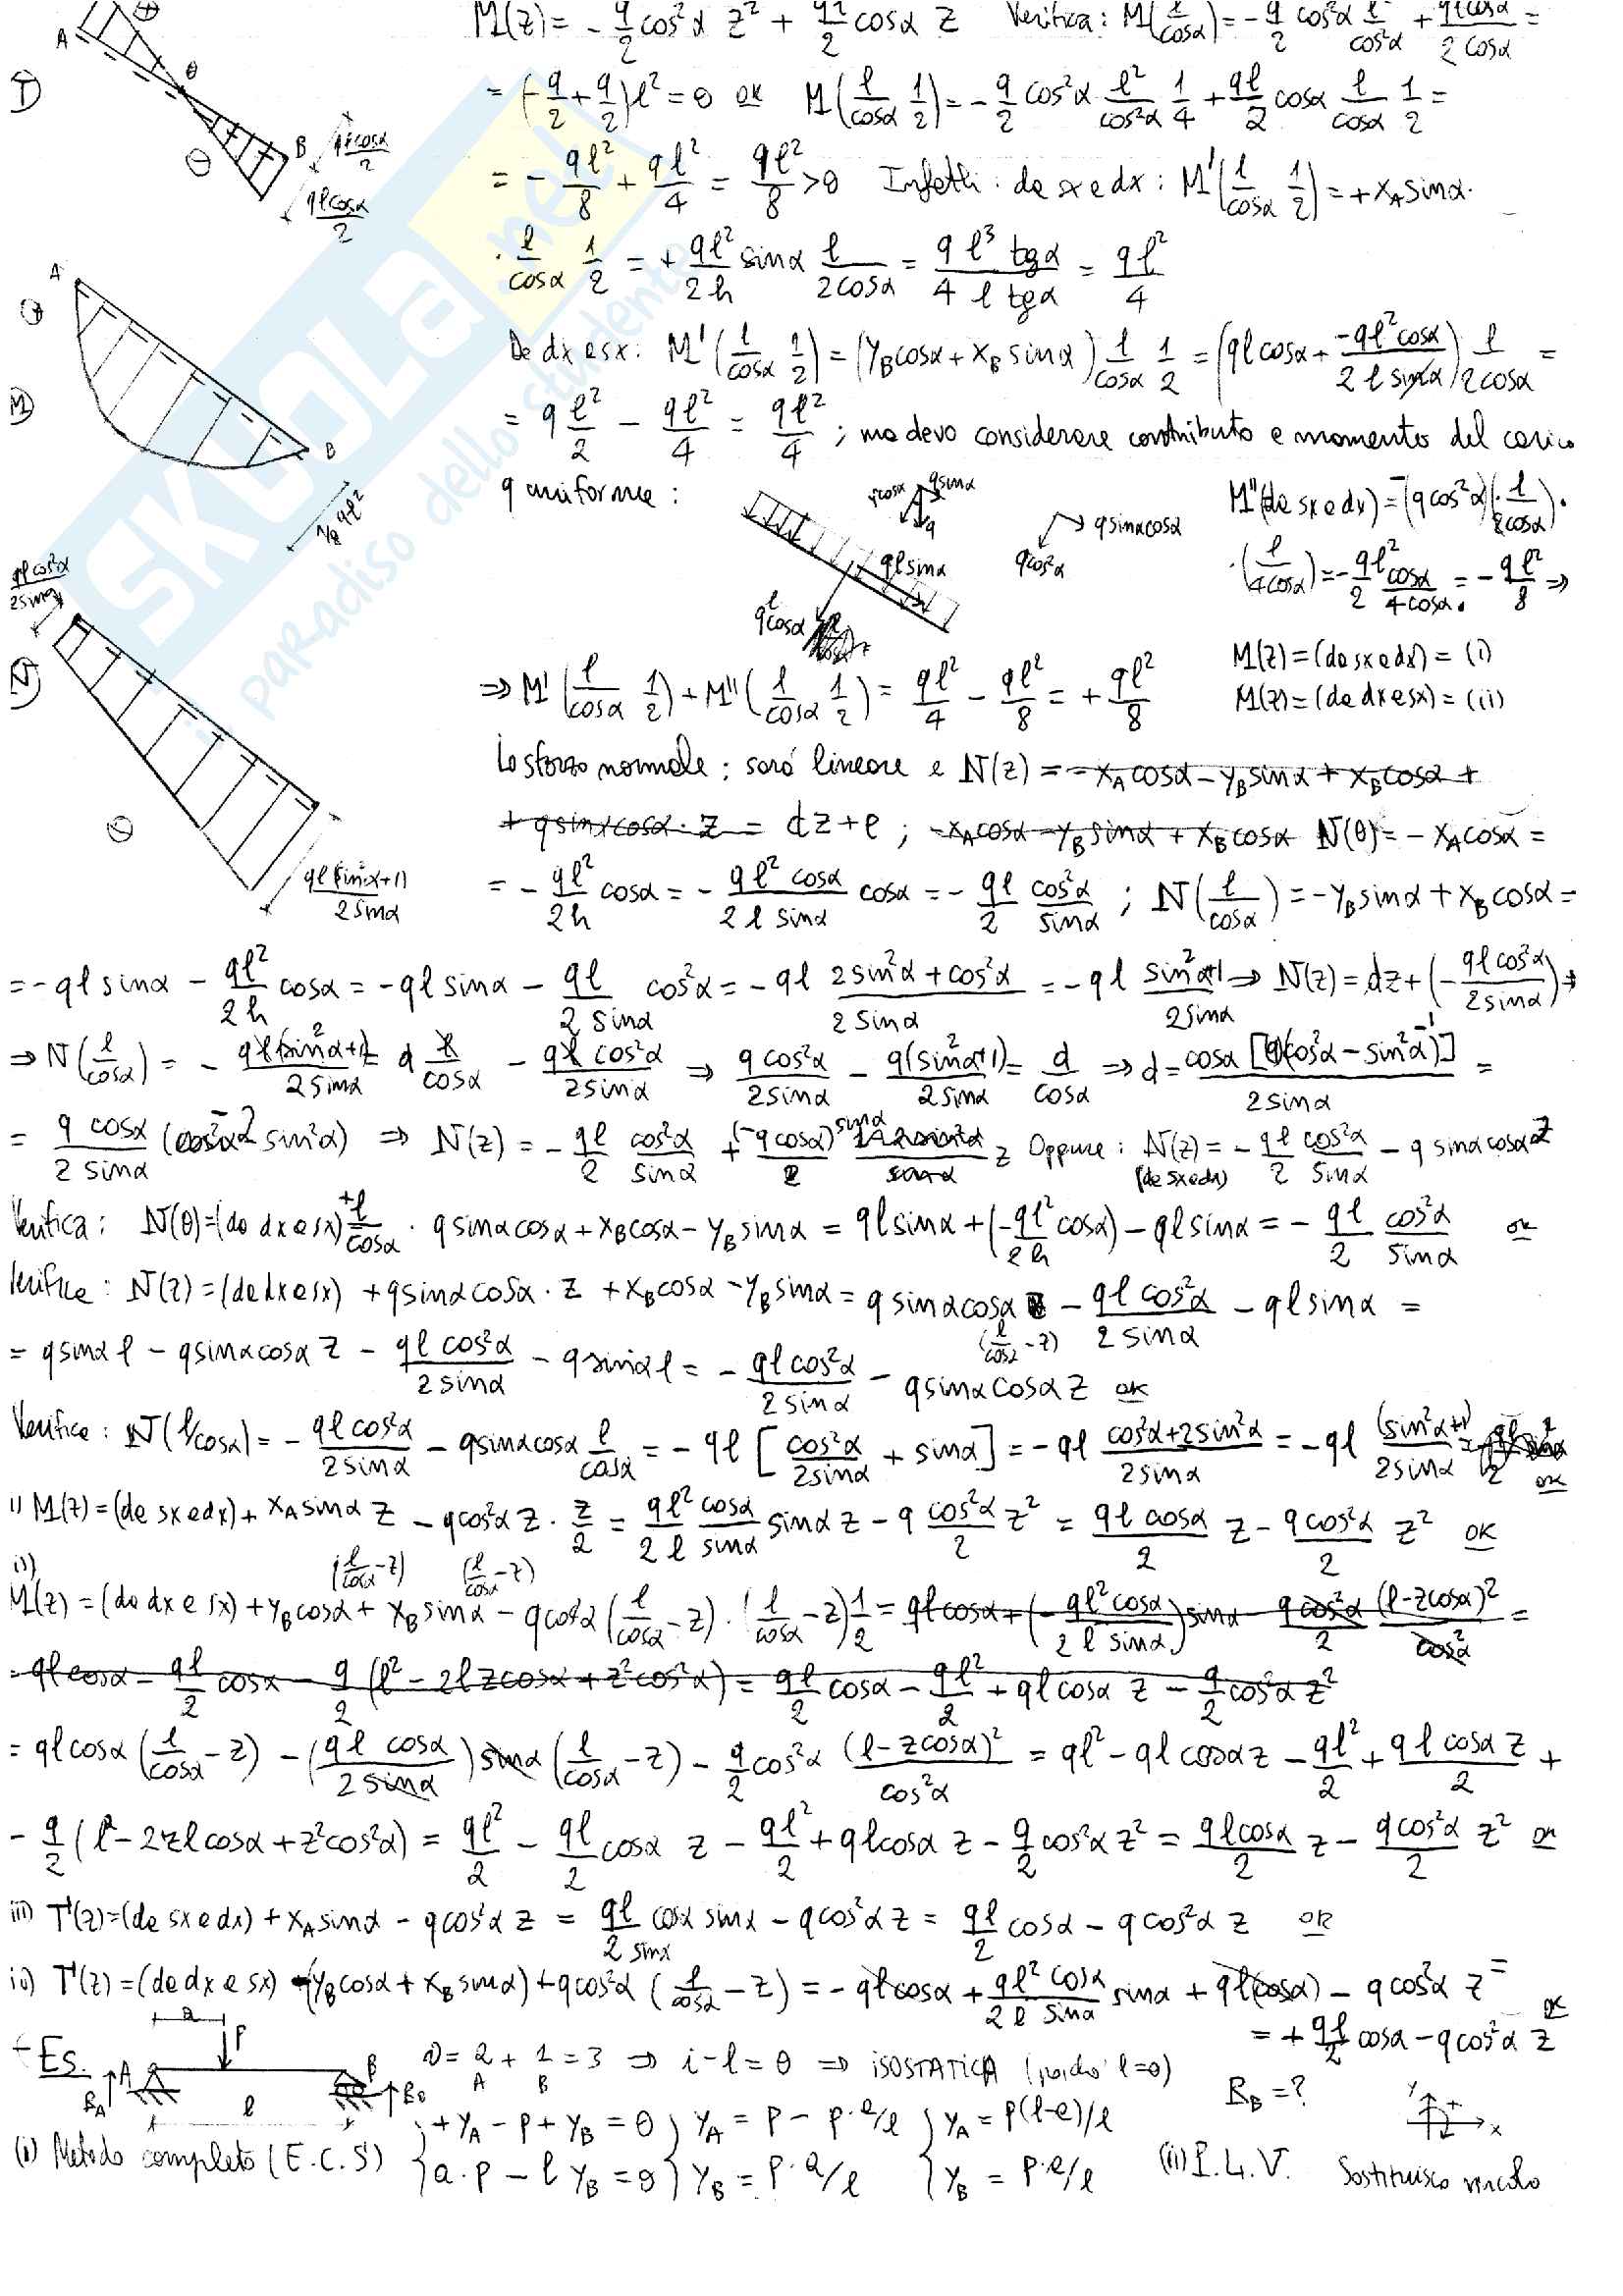 M(z) = - q/2 cos²α z² + ql/2 cosα z   Verifica: M(l/cosα) = - q/2 cos²α l²/cos²α + ql cosα l/2 cosα =
= (- q/2 + q/2) l² = 0 ok   M(l/cosα 1/2) = - q/2 cos²α l²/cos²α 1/4 + ql/2 cosα l/cosα 1/2 =
= - ql²/8 + ql²/4 = ql²/8 > 0   Infatti: da sx e dx: M'(l/cosα 1/2) = + X_A sinα ·
· l/cosα 1/2 = + ql²/2h sinα l/2cosα = q l³ tgα/4 l tgα = ql²/4
Da dx e sx: M'(l/cosα 1/2) = (Y_B cosα + X_B sinα) l/cosα 1/2 = (ql cosα + -ql² cosα/2 l sinα) l/2cosα =
= q l²/2 - ql²/4 = ql²/4 ; ma devo considerare contributo e momento del carico
q uniforme:
qcosα qsinα q
qsinαcosα
qcos²α
qlsinα
qlcosα
M''(da sx e dx) = -(qcos²α)(l/2cosα) ·
· (l/4cosα) = - ql²/2 cosα/4cosα = - ql²/8 ⇒
⇒ M'(l/cosα 1/2) + M''(l/cosα 1/2) = ql²/4 - ql²/8 = + ql²/8
M(z) = (da sx e dx) = (i)
M(z) = (da dx e sx) = (ii)
Lo sforzo normale; sarà lineare e N(z) = - X_A cosα - Y_B sinα + X_B cosα +
+ qsinαcosα · z = dz + e ; - X_A cosα - Y_B sinα + X_B cosα N(0) = - X_A cosα =
= - ql²/2h cosα = - ql² cosα/2 l sinα cosα = - ql/2 cos²α/sinα ; N(l/cosα) = - Y_B sinα + X_B cosα =
= - ql sinα - ql²/2h cosα = - ql sinα - ql/2 sinα cos²α = - ql 2sin²α + cos²α/2 sinα = - ql sin²α+1/2sinα ⇒ N(z) = dz + (- ql cos²α/2sinα) ⇒
⇒ N(l/cosα) = - ql(sin²α+1)/2sinα = d l/cosα - ql cos²α/2sinα ⇒ q cos²α/2sinα - q(sin²α+1)/2sinα = d/cosα ⇒ d = cosα [q(cos²α - sin²α - 1)]/2sinα =
= q cosα/2 sinα (-2 sin²α) ⇒ N(z) = - ql/2 cos²α/sinα + (-q cosα) sinα z   Oppure: N(z) = (da sx e dx) - ql/2 cos²α/sinα - q sinαcosα z
Verifica: N(0) = (da dx e sx) + l/cosα · q sinαcosα + X_B cosα - Y_B sinα = qlsinα + (- ql²/2h cosα) - qlsinα = - ql/2 cos²α/sinα ok
Verifica: N(z) = (da dx e sx) + qsinαcosα · z + X_B cosα - Y_B sinα = q sinαcosα (l/cosα - z) - ql cos²α/2 sinα - qlsinα =
= qsinα l - qsinαcosα z - ql cos²α/2 sinα - q sinα l = - ql cos²α/2 sinα - qsinαcosα z ok
Verifica: N(l/cosα) = - ql cos²α/2sinα - qsinαcosα l/cosα = - ql [cos²α/2sinα + sinα] = - ql cos²α+2sin²α/2sinα = - ql (sin²α+1)/2sinα ok
i) M(z) = (da sx e dx) + X_A sinα z - qcos²α z · z/2 = ql² cosα/2 l sinα sinα z - q cos²α/2 z² = ql cosα/2 z - qcos²α/2 z² ok
ii) M(z) = (da dx e sx) + Y_B cosα (l/cosα - z) + X_B sinα (l/cosα - z) - qcos²α (l/cosα - z) · (l/cosα - z) 1/2 = qlcosα + (- ql² cosα/2 l sinα) sinα - qcos²α/2 (l - zcosα)²/cos²α =
= ql cosα - ql/2 cosα - q/2 (l² - 2l z cosα + z² cos²α) = ql/2 cosα - ql²/2 + qlcosα z - q/2 cos²α z²
= ql cosα (l/cosα - z) - (ql cosα/2 sinα) sinα (l/cosα - z) - q/2 cos²α (l - zcosα)²/cos²α = ql² - ql cosαz - ql²/2 + ql cosα z/2 +
- q/2 (l² - 2zl cosα + z²cos²α) = ql²/2 - ql/2 cosα z - ql²/2 + qlcosα z - q/2 cos²α z² = qlcosα/2 z - qcos²α/2 z² ok
iii) T(z) = (da sx e dx) + X_A sinα - qcos²α z = ql/2 sinα cosα sinα - qcos²α z = ql/2 cosα - qcos²α z ok
iv) T(z) = (da dx e sx) -(Y_B cosα + X_B sinα) + qcos²α (l/cosα - z) = - qlcosα + ql² cosα/2 l sinα sinα + ql(cosα) - qcos²α z =
= + ql/2 cosα - qcos²α z ok
Es.
a P A B R_A R_B l
v = 2 + 1 = 3 ⇒ i - l = 0 ⇒ ISOSTATICA (poichè l=0)
A B
R_B = ?
y + x
(i) Metodo completo (E.C.S)
{ + Y_A - P + Y_B = 0 } Y_A = P - P·a/l } Y_A = P(l-a)/l
{ a·P - l Y_B = 0 } Y_B = P·a/l { Y_B = P·a/l
(ii) P.L.V. Sostituisco vincolo
T
A
0
⊕
⊖
B
qlcosα/2
qlcosα/2
A
⊕
M
B
1/8 ql²
qlcos²α/2sinα
N
⊖
ql(sin²α+1)/2sinα
SKUOLA.net
il paradiso dello studente